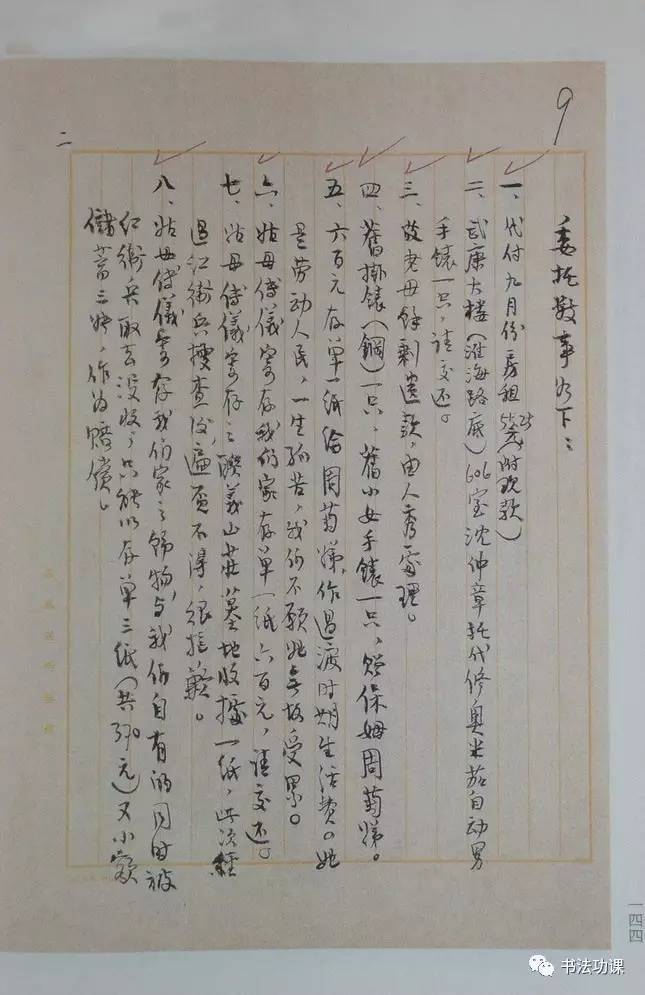 9
二
委托数事如下：
一、代付九月份房租 55.29元（附现款）
二、武康大楼（淮海路底）606室沈仲章托代修奥米茄自动男
手錶一只，请交还。
三、故老母餘剩遗款，由人秀处理。
四、舊掛錶（鋼）一只，舊小女手錶一只，贈保姆周菊娣。
五、六百元存单一纸给周菊娣，作过渡时期生活费。她
是劳动人民，一生孤苦，我们不愿她无故受累。
六、姑母傅仪寄存我们家存单一纸六百元，请交还。
七、姑母傅仪寄存之联義山莊墓地收據一纸，此次經
过红衛兵搜查后遍覓不得，很抱歉。
八、姑母傅仪寄存我们家之饰物，与我们自有的同时被
红衛兵取去没收，只能以存单三纸（共370元）又小額
儲蓄三张，作为赔償。
一四四
书法功课